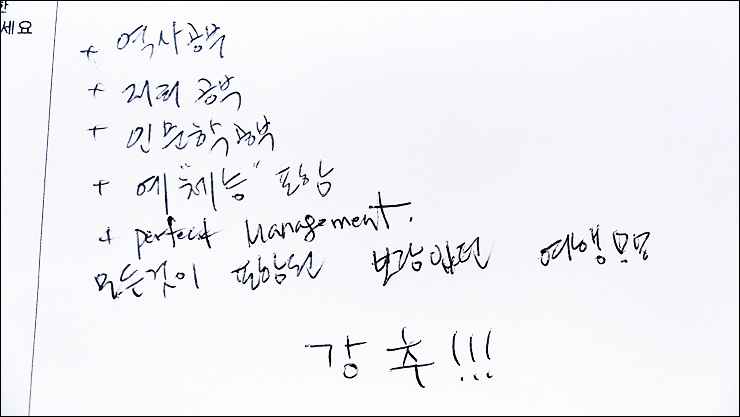 한
세요
+ 역사공부
+ 지리 공부
+ 인문학공부
+ 예"체능" 포함
+ perfect Management.
모든것이 포함된 보람있던 여행모임
강추!!!